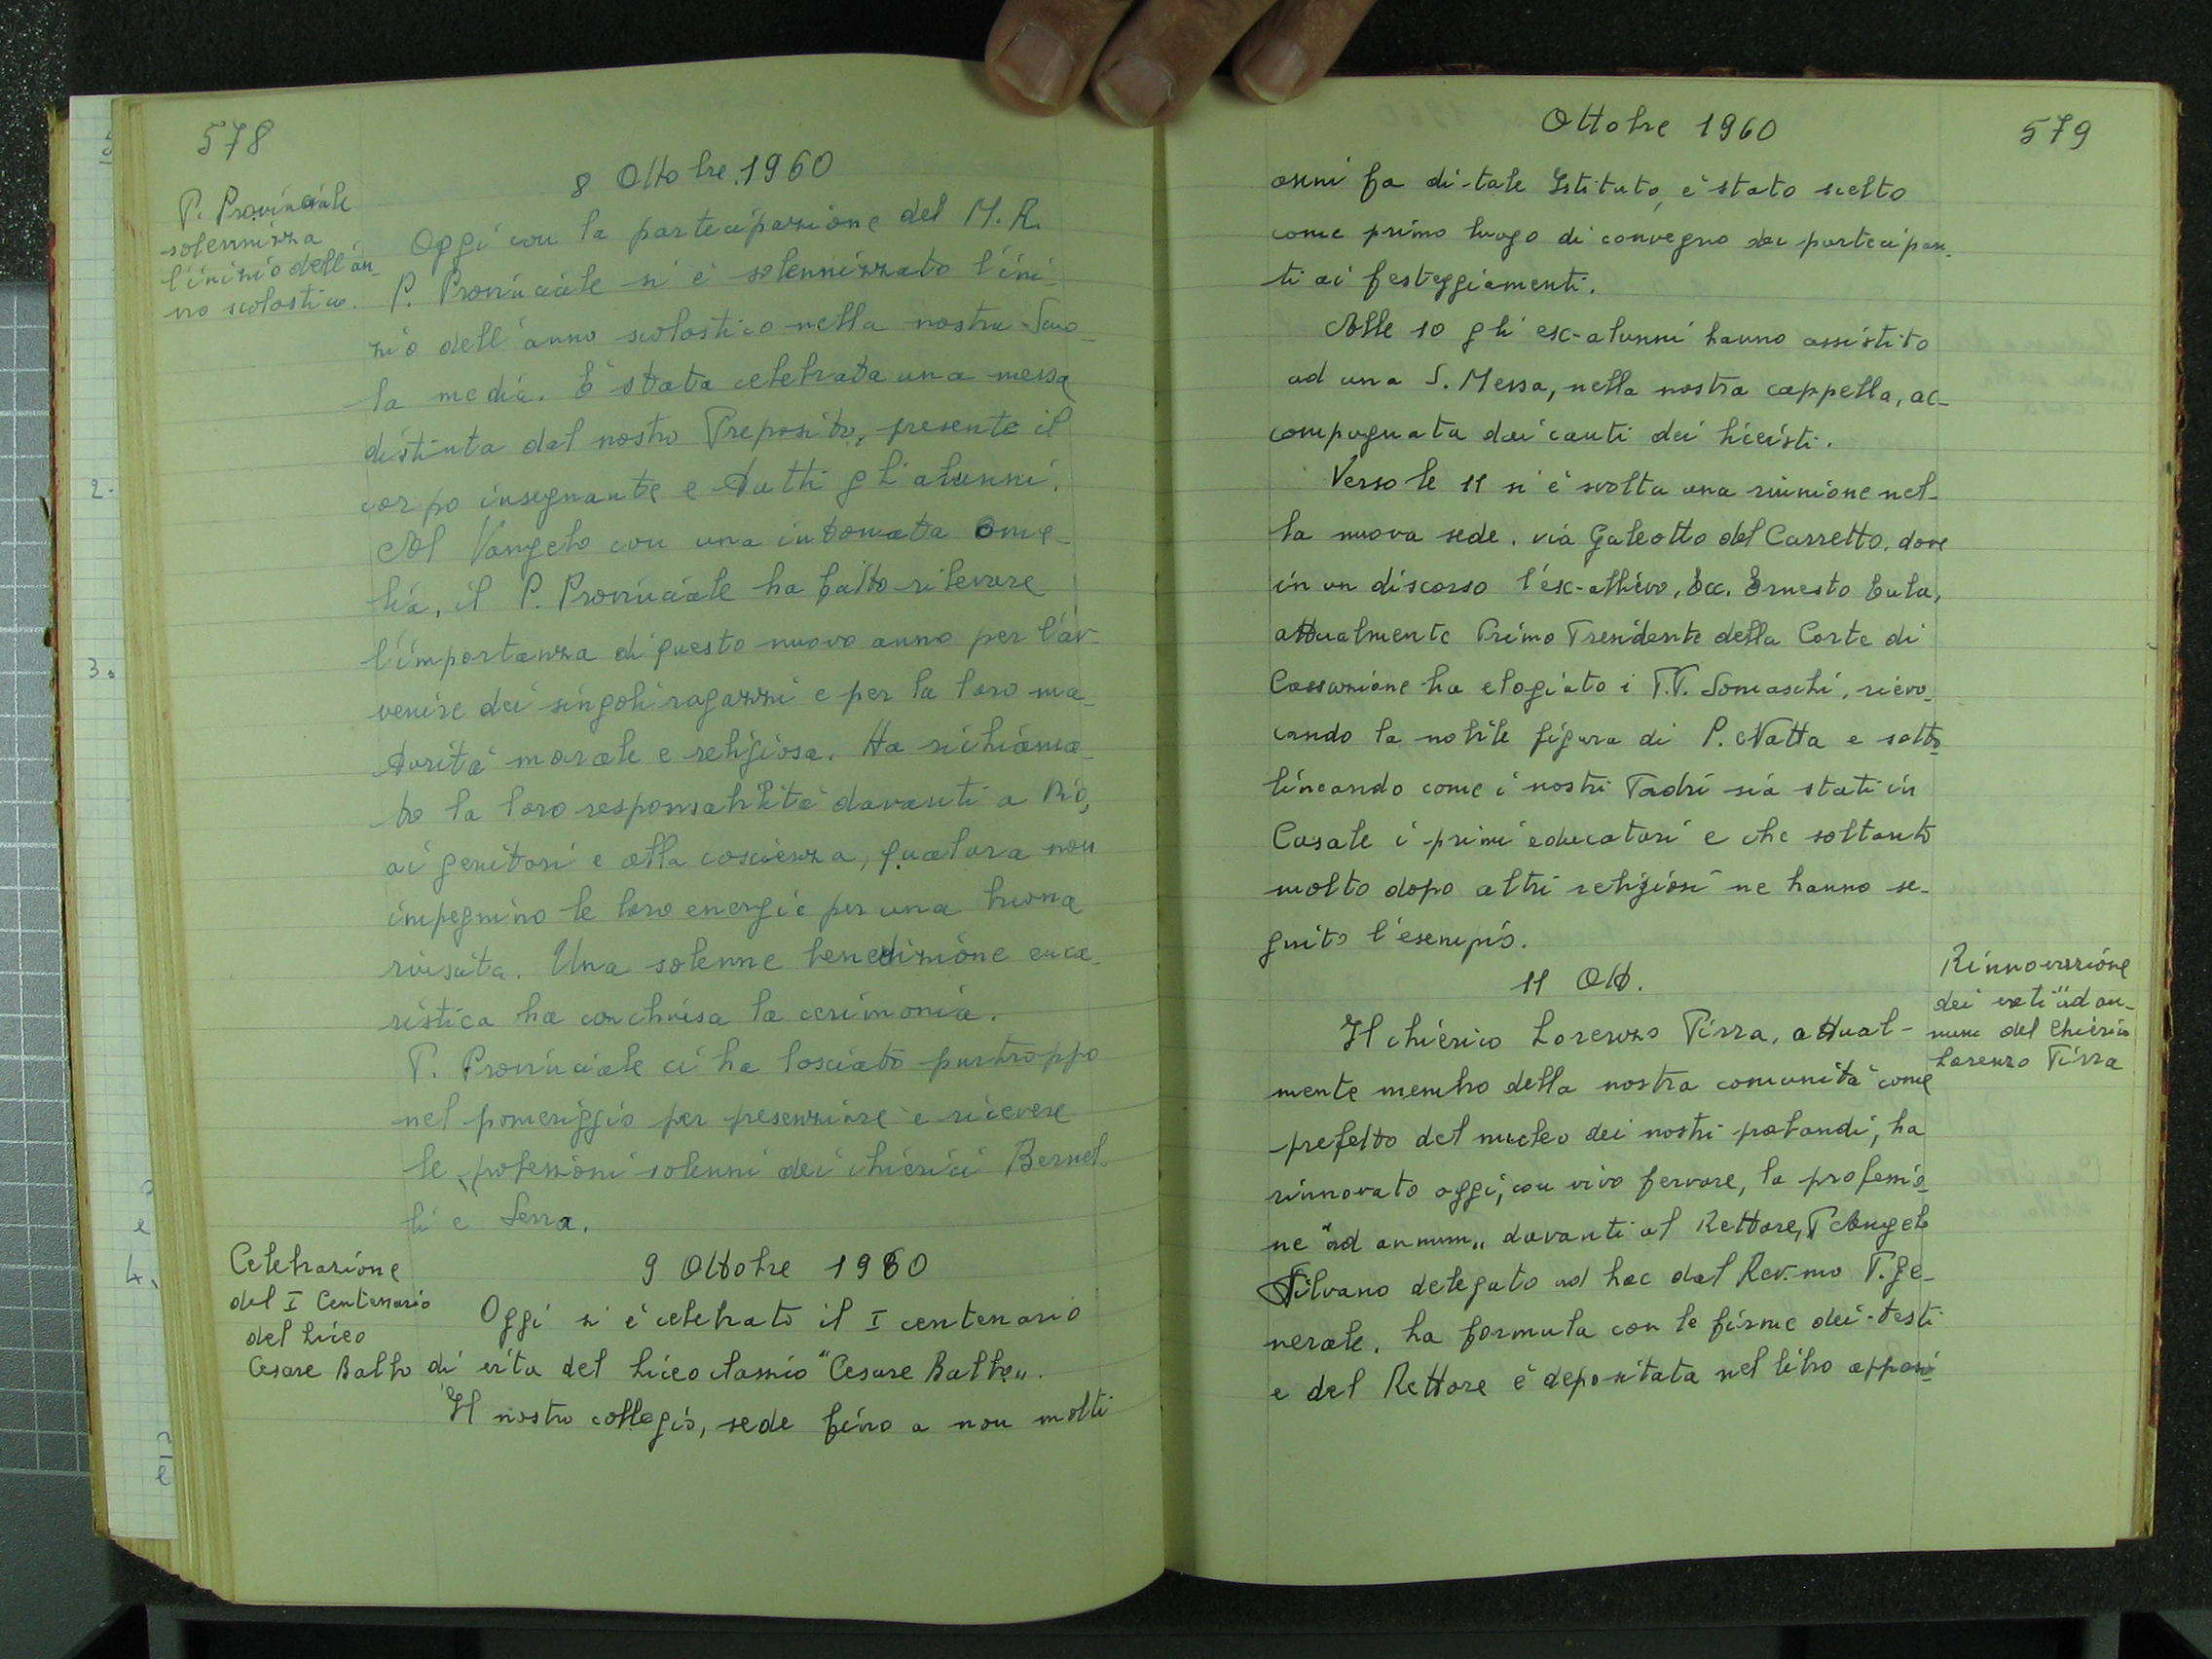 578
8 Ottobre 1960
P. Provinciale
solennizza
l'inizio dell'an-
no scolastico.
Oggi con la partecipazione del M. R.
P. Provinciale si è solennizzato l'ini-
zio dell'anno scolastico nella nostra Scuo-
la media. È stata celebrata una messa
distinta dal nostro Preposito, presente il
corpo insegnante e tutti gli alunni.
Al Vangelo con una intonata ome-
lia, il P. Provinciale ha fatto rilevare
l'importanza di questo nuovo anno per l'av-
venire dei singoli ragazzi e per la loro ma-
turità morale e religiosa. Ha richiama-
to la loro responsabilità davanti a Dio,
ai genitori e alla coscienza, qualora non
impegnino le loro energie per una buona
riuscita. Una solenne benedizione euca-
ristica ha conchiusa la cerimonia.
P. Provinciale ci ha lasciato purtroppo
nel pomeriggio per presenziare e ricevere
le professioni solenni dei chierici Bernel-
li e Serra.
9 Ottobre 1960
Celebrazione
del I Centenario
del Liceo
Cesare Balbo
Oggi si è celebrato il I centenario
di vita del Liceo classico "Cesare Balbo".
Il nostro collegio, sede fino a non molti
Ottobre 1960
579
anni fa di tale Istituto, è stato scelto
come primo luogo di convegno dei partecipan-
ti ai festeggiamenti.
Alle 10 gli ex-alunni hanno assistito
ad una S. Messa, nella nostra cappella, ac-
compagnata dai canti dei liceisti.
Verso le 11 si è svolta una riunione nel-
la nuova sede, via Galeotto del Carretto, dove
in un discorso l'ex-allievo, Ecc. Ernesto Eula,
attualmente Primo Presidente della Corte di
Cassazione ha elogiato i P.P. Somaschi, rievo-
cando la nobile figura di P. Natta e sotto-
lineando come i nostri Padri sia stati in
Casale i primi educatori e che soltanto
molto dopo altri religiosi ne hanno se-
guito l'esempio.
11 Ott.
Rinnovazione
dei voti "ad an-
num del Chierico
Lorenzo Pissa
Il chierico Lorenzo Pissa, attual-
mente membro della nostra comunità come
prefetto del nucleo dei nostri probandi, ha
rinnovato oggi, con vivo fervore, la professio-
ne "ad annum" davanti al Rettore, P. Angelo
Silvano delegato ad hoc dal Rev.mo P. Ge-
nerale. La formula con le firme dei testi
e del Rettore è depositata nel libro apposi-